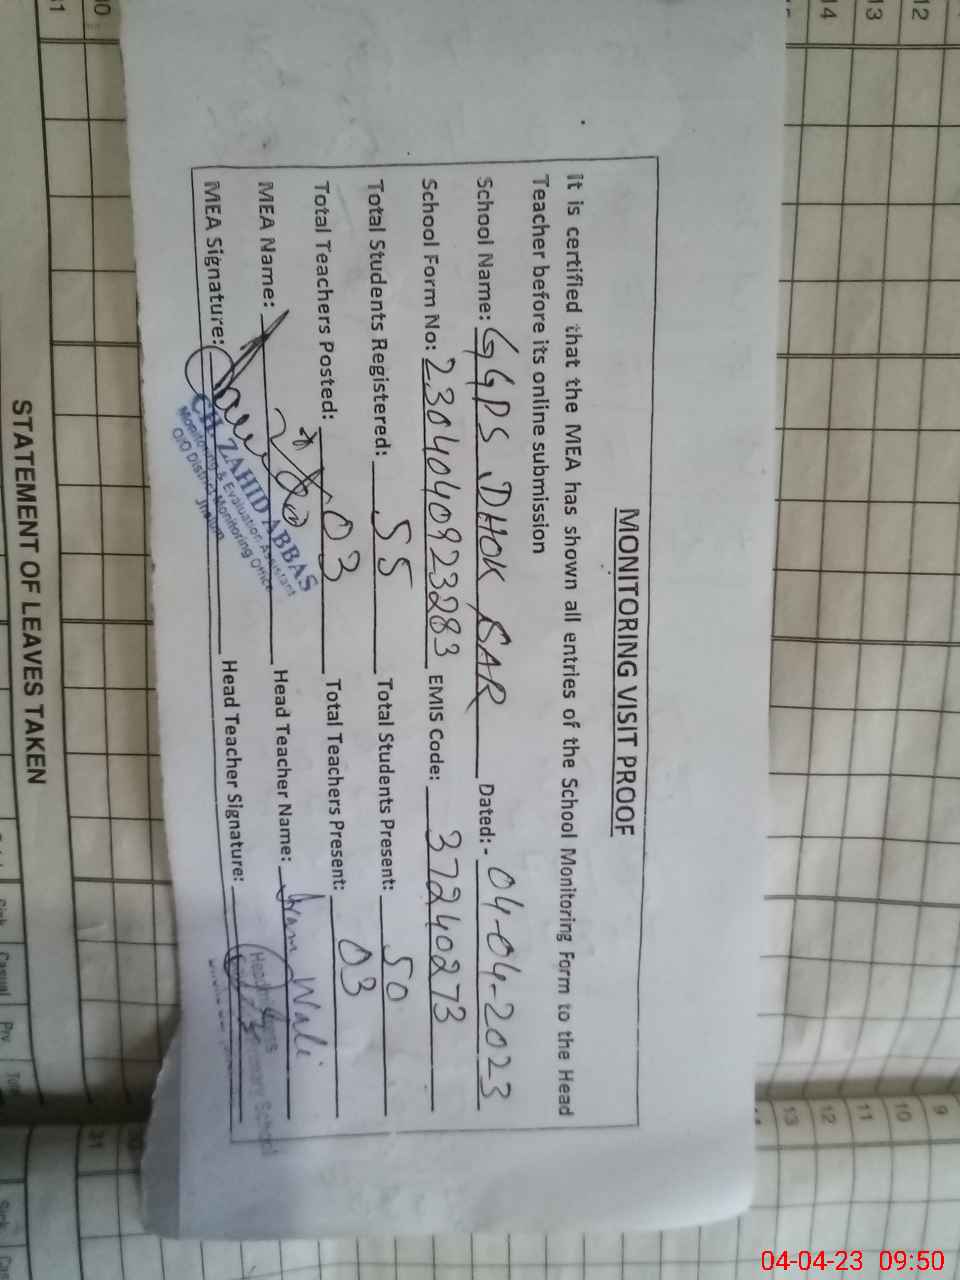 MONITORING VISIT PROOF
It is certified that the MEA has shown all entries of the School Monitoring Form to the Head
Teacher before its online submission
School Name: GGPS DHOK SAR Dated:- 04-04-2023
School Form No: 230404092 3283 EMIS Code: 37240273
Total Students Registered: 55 Total Students Present: 50
Total Teachers Posted: 03 Total Teachers Present: 03
MEA Name: Head Teacher Name: Wali
MEA Signature: Head Teacher Signature:
CH. ZAHID ABBAS
Monitoring & Evaluation Assistant
O/O District Monitoring Office
Jhelum
STATEMENT OF LEAVES TAKEN
12
13
14
9
10
11
12
13
31
Casual
Prv
04-04-23 09:50